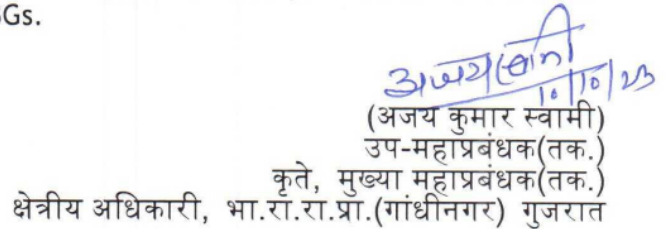 Gs.
अजय स्वामी
10/10/23
(अजय कुमार स्वामी)
उप-महाप्रबंधक(तक.)
कृते, मुख्या महाप्रबंधक(तक.)
क्षेत्रीय अधिकारी, भा.रा.रा.प्रा.(गांधीनगर) गुजरात